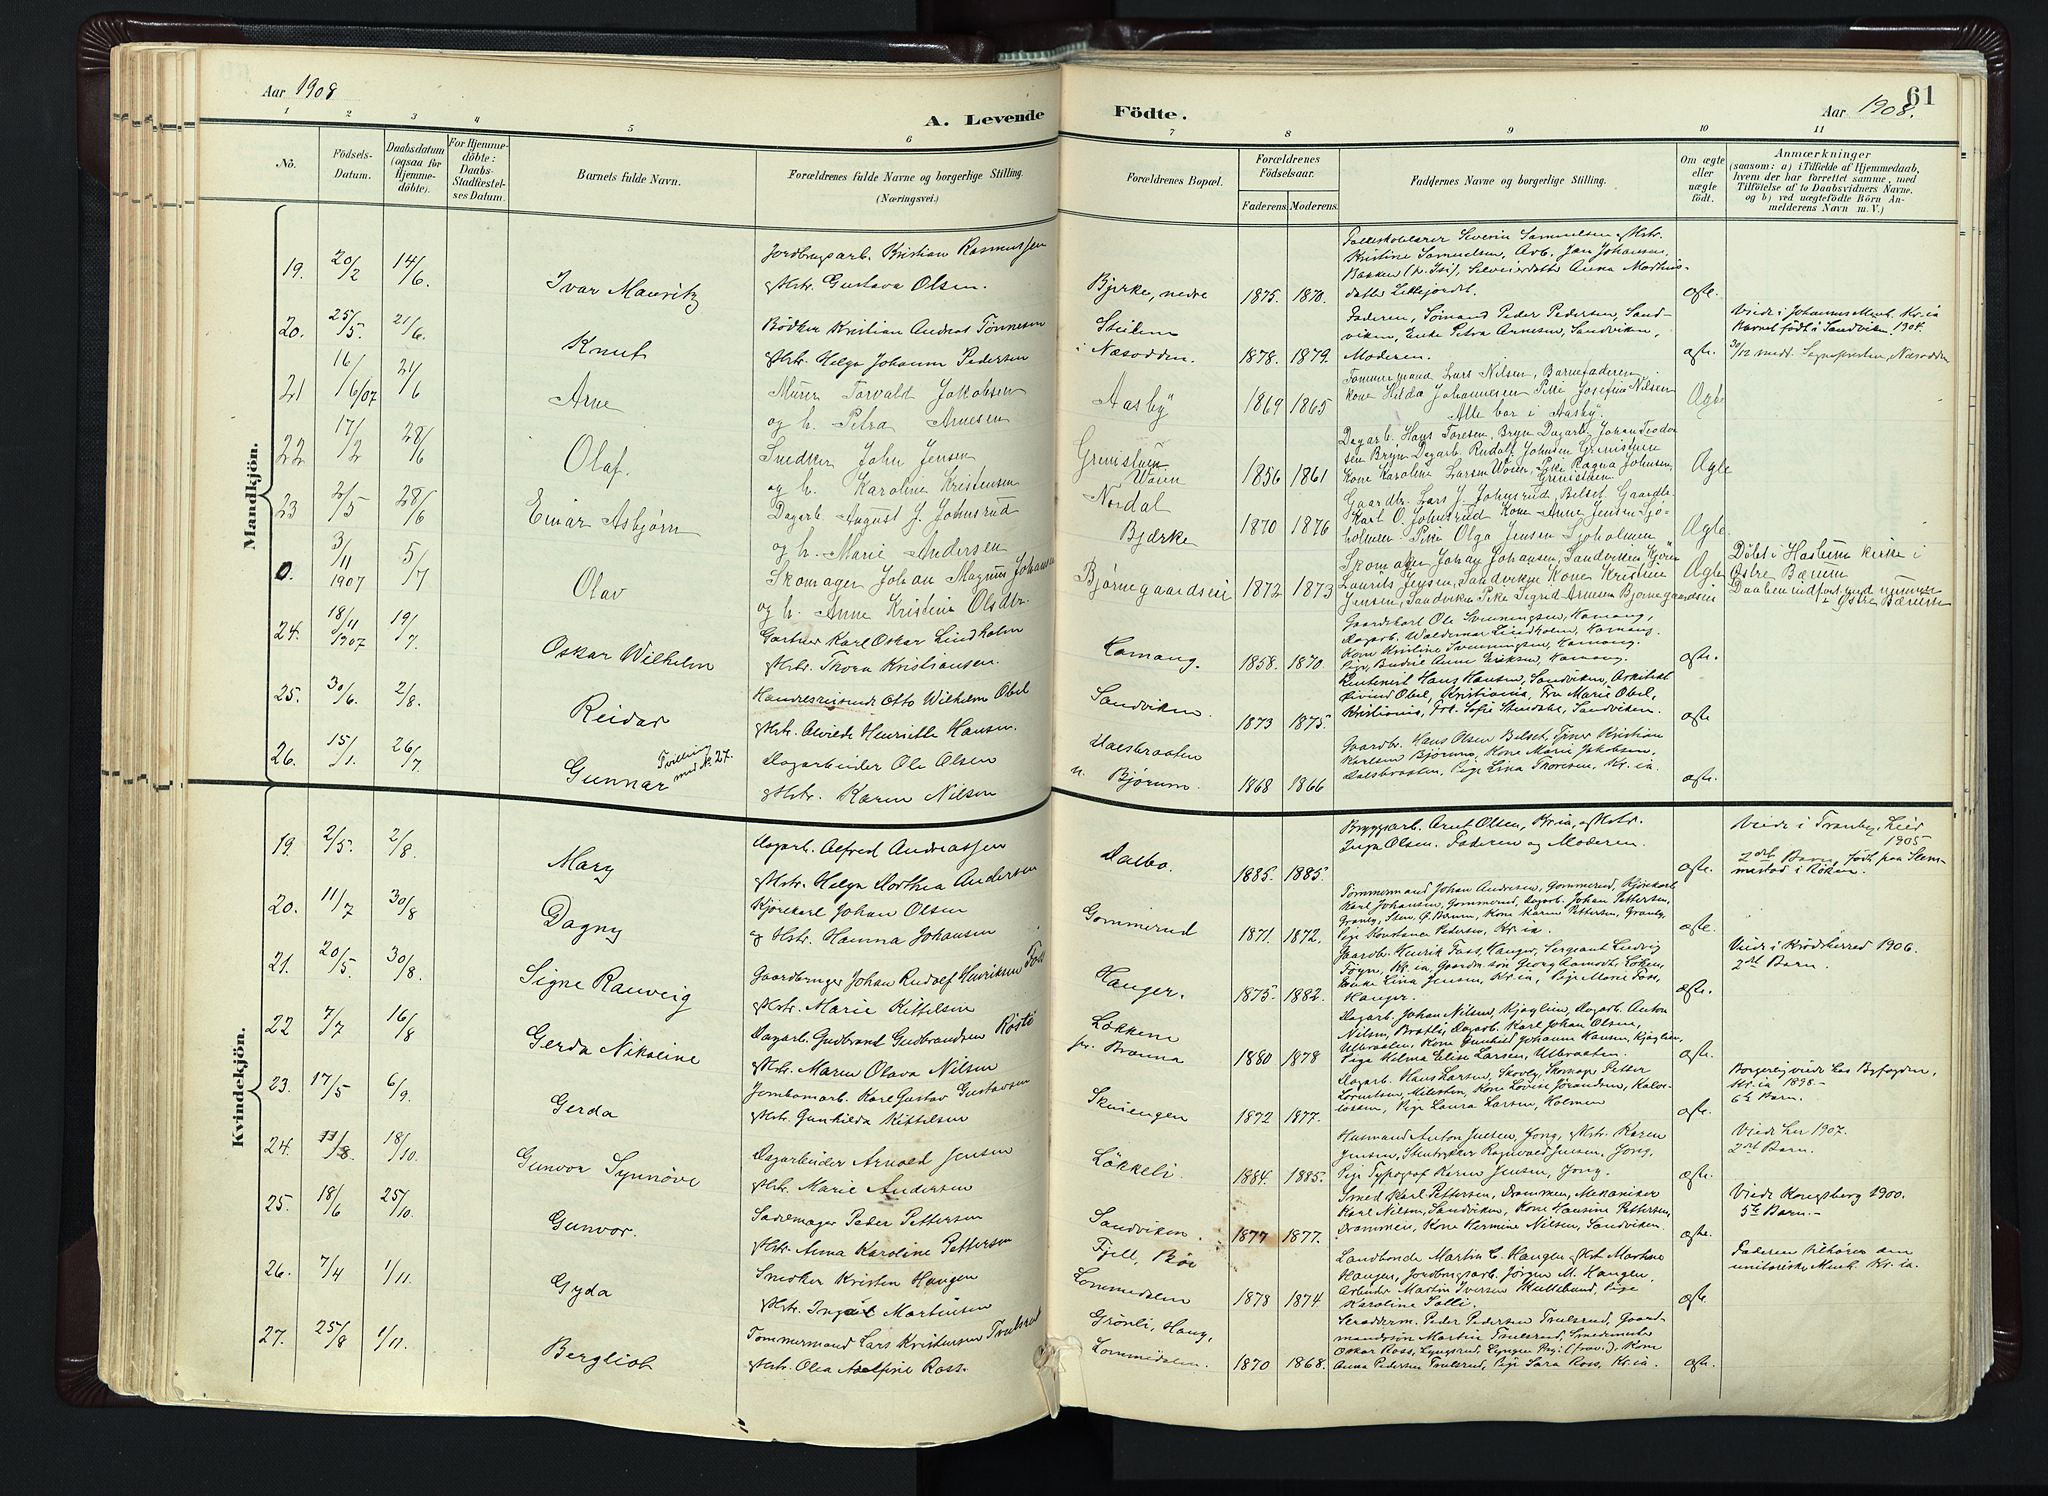 Aar 1908
A. Levende
Födte.
Aar 1908.
61
1 2 3 4 5 6 7 8 9 10 11
No.
Födsels-Datum.
Daabsdatum (ogsaa for Hjemme-döbte).
For Hjemme-döbte: Daabs-Stadfæstel-ses Datum.
Barnets fulde Navn.
Forældrenes fulde Navne og borgerlige Stilling.
(Næringsvei.)
Forældrenes Bopæl.
Forældrenes Födselsaar.
Faderens. Moderens.
Faddernes Navne og borgerlige Stilling.
Om ægte eller uægte födt.
Anmærkninger
(saasom: a) i Tilfælde af Hjemmedaab, hvem der har forrettet samme, med Tilföielse af to Daabsvidners Navne, og b) ved uægtefödte Börn Anmelderens Navn m. V.)
Mandkjön.
19. 20/2 14/6. Ivar Mauritz
Jordbrugsarb. Kristian Rasmussen
og Hstr. Gustava Olsen.
Bjerke, nedre 1875. 1870.
Folkeskolelærer Severin Samuelsen og Hstr.
Kristine Samuelsen, Arb. Jan Johansen,
Bakken
datter Lillejordet. ægte.
20. 25/5. 21/6. Knut
Bødker Kristian Andreas Tønnesen
og Hstr. Helga Johanne Pedersen
i Næsodden. 1878. 1879.
Faderen, Sømand Peder Pedersen, Sand-
viken, Enke Petra Arnesen, Sandviken,
Moderen. ægte.
Barnet født i Sandviken 1904.
30/12 medd. Sognepresten, Næsodden
21 16/6/07 24/6 Arne
Murer Torvald Jakobsen
og h. Petra Arnesen
Aasby" 1869 1865
Tømmermand Lars Nilsen, Barnefaderen
Kone Hilda Johannesen Pike Josefine Nilsen
Alle bor i Aasby". Ægte
22 17/2 28/6 Olaf.
Snedker John Jensen
og h. Karoline Kristensen
Grinistuen
Wøien 1856 1861
Dagarb. Hans Toresen, Bryn Dagarb. Johan Teodor
sen Bryn Dagarb. Rudolf Johnsen Grinistuen
Kone Karoline Larsen Wøien, Pike Ragna Johnsen,
Grinistuen Ægte
23 2/5 28/6 Einar Asbjørn
Dagarb. August J. Johnsrud
og h. Marie Andersen
Nordal
Bjærke 1870 1876
Gaardbr. Lars J. Johnsrud Belset, Gaardbr.
Karl O. Johnsrud Kone Anne Jensen Sjø-
holmen Pike Olga Jensen Sjøholmen Ægte
0. 3/11 1907 5/7 Olav
Skomager Johan Magnus Johansen
og h. Anne Kristine Olsdtr.
Bjørnegaardseie 1872 1873
Skomager Johan Johansen, Sandviken
Laurits Jensen, Sandviken Kone Kristine
Jensen, Sandviken Pike Sigrid Arnesen Bjørnegaardseie Ægte
Døbt i Haslum kirke i
Østre Bærum
Daaben indført med nummer
i Østre Bærum
24. 18/11 1907 19/7. Oskar Wilhelm
Gartner Karl Oskar Lindholm
og Hstr. Thora Kristiansen.
Hamang. 1858. 1870.
Gaardskarl Ole Svenningsen, Hamang,
Dagarb. Waldemar Lindholm, Hamang.
Kone Kristine Svenningsen, Hamang.
Pige Anne Eriksen, Hamang. ægte.
25. 30/6. 2/8. Reidar
Handelsreisende Otto Wilhelm Obel
og Hstr. Alvilde Henriette Hansen.
Sandviken. 1873 1875.
Rentenist Hans Hansen, Sandviken, Arkitekt
Eivind Obel, Kristiania, Fru Marie Obel,
Kristiania, Frk. Sofie Stendahl, Sandviken. ægte
26. 15/1. 26/7. Gunnar Tvilling med N. 27.
Dagarbeider Ole Olsen
og Hstr. Karen Nilsen
Dalsbraaten
u. Bjørum. 1868 1866
Gaardbr. Hans Olsen Belset, Tjener Kristian
Karlsen Bjørum, Kone Marie Jakobsen,
Dalsbraaten, Pige Lina Thoresen, Kr.ia. ægte.
Kvindekjön.
19. 2/5. 2/8. Mary
Dagarb. Alfred Andreassen
og Hstr. Helga Dorthea Andersen
Dalbo. 1885. 1885.
Bryggearb. Arnt Olsen, Kr.ia, og Hstr.
Inga Olsen. Faderen og Moderen. ægte.
Viede i Tranby, Lier
1905
2det Barn, født paa Slem-
mestad i Røken.
20. 11/7 30/8 Dagny
Kjørekarl Johan Olsen
og Hstr. Hanna Johansen
Gommerud 1871. 1872.
Tømmermand Johan Andresen, Gommerud, Kjørekarl
Karl Johansen, Gommerud, Dagarb. Johan Pettersen,
Granby, Kone Karen Pettersen, Granby,
Pige Konstance Pedersen, Kr.ia. ægte.
21. 20/5. 30/8. Signe Ranveig
Gaardbruger Johan Rudolf Henriksen Foss
og Hstr. Marie Kittelsen
Hauger. 1875. 1882.
Gaardb. Henrik Foss, Hauger, Sergeant Ludvig
Føyn, Kr.ia, Gaardm.søn Georg Aamodt Løken,
Enke Lina Jensen, Kr.ia, Pige Marie Foss,
Hauger. ægte.
Viede i Krødsherred 1906.
2det Barn.
22 7/7 16/8 Gerda Nikoline
Dagarb. Gudbrand Gudbrandsen Røste
og Hstr. Maren Olava Nilsen
Løkken
pr. Brenna 1880 1878
Dagarb. Johan Nilsen, Kjaglien, Dagarb. Anton
Nilsen, Bratli, Dagarb. Karl Johan Olsen,
Ulbraaten, Kone Gunhild Johanne Hansen, Kjaglien,
Pige Helma Elise Larsen, Ulbraaten. ægte
23. 17/5 6/9. Gerda
Jernbanearb. Karl Gustav Gustavsen
og Hstr. Gunhilda Kittelsen
Skuiengen 1872 1877.
Dagarb. Hans Larsen, Skovly, Skomager Petter
Lorentsen, Milesten, Kone Lovise Jørandsen,
Pige Laura Larsen, Holmen ægte
Borgerlig viede hos Byfogden,
Kr.ia 1898.-
6te Barn.
24. 11/8. 18/10. Gunvor Synnøve
Dagarbeider Arnold Jensen
og Hstr. Marie Andersen
Løkkeli. 1884. 1885.
Husmand Anton Juelsen, Jong, og Hstr. Karen
Jensen, Stentrykker Ragnvald Jensen, Jong,
Pige Typograf Karen Jensen, Jong. ægte.
Viede her 1907.
2det Barn.
25. 18/6 25/10. Gunvor.
Sadelmager Peder Pettersen
og Hstr. Anna Karoline Pettersen
Sandviken. 1877 1877.
Smed Karl Pettersen, Drammen, Mekaniker
Karl Nilsen, Sandviken, Kone Hansine Pettersen,
Drammen, Kone Hermine Nilsen, Sandviken. ægte.
Viede Kongsberg 1900.
5te Barn.-
26. 7/4 1/11. Gyda
Snedker Kristen Haugen
og Hstr. Martinsen
Fjell, Bøe
Lommedalen 1878 1874.
Landbonde Martin C. Haugen og Hst Martine
Haugen, Jordbrugsarb. Jørgen M. Haugen,
Arbeider Martin Iversen Kullebund, Pige
Karoline Solli. ægte.
Faderen tilhører den
unitariske Menh. Kr.ia.
27. 25/8 1/11. Bergliot
Tømmermand Lars Kristensen Trulsrud
og Hstr. Olea Adolfine Ross.
Grønli, Haug,
Lommedalen. 1870 1868.
Skraddern. Peder Pedersen Trulsrud, Gaard-
mandssøn Martin Trulsrud, Smedmester
Oskar Ross, Lyngsrud, Kone
Anna Pedersen Trulsrud, Pige Sara Ross, Kr.ia. ægte.